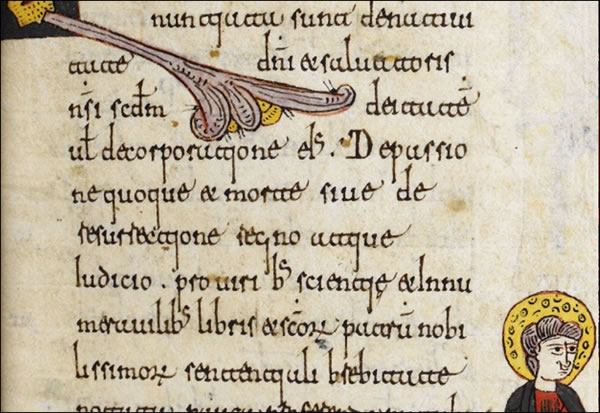 nuntiata sunt denatiui
tate dñi & saluatoris
nr̄i scdm deitatē
ul̄ decorporatione eiꝰ. Depassio
ne quoque & morte siue de
resurrectione regno atque
Iudicio . pro uiribꝰ scientię & Innu
merauilibꝰ libris & scōrꝫ patrū nobi
lissimorꝫ sententiali brebitate